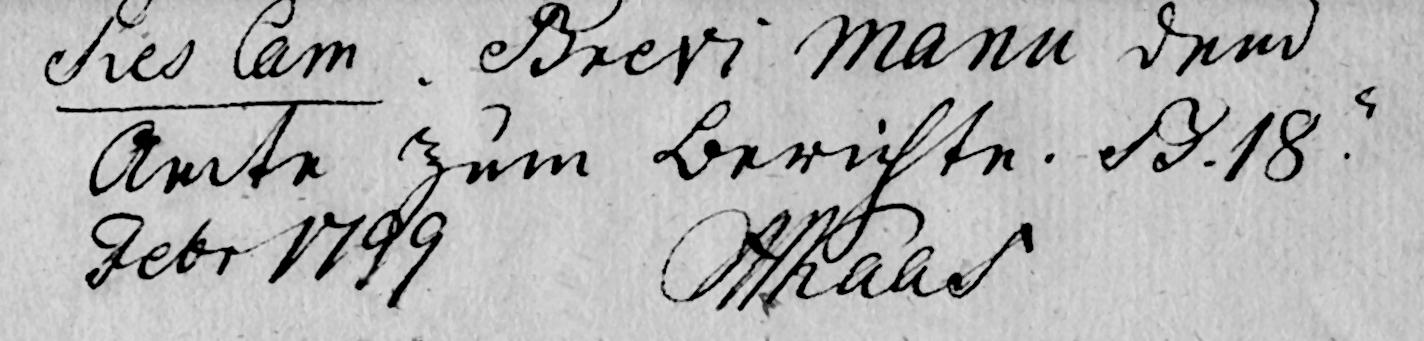 Res Cam. Brevi manu dem
Amte zum Berichte. B. 18.
Febr 1799 Haas